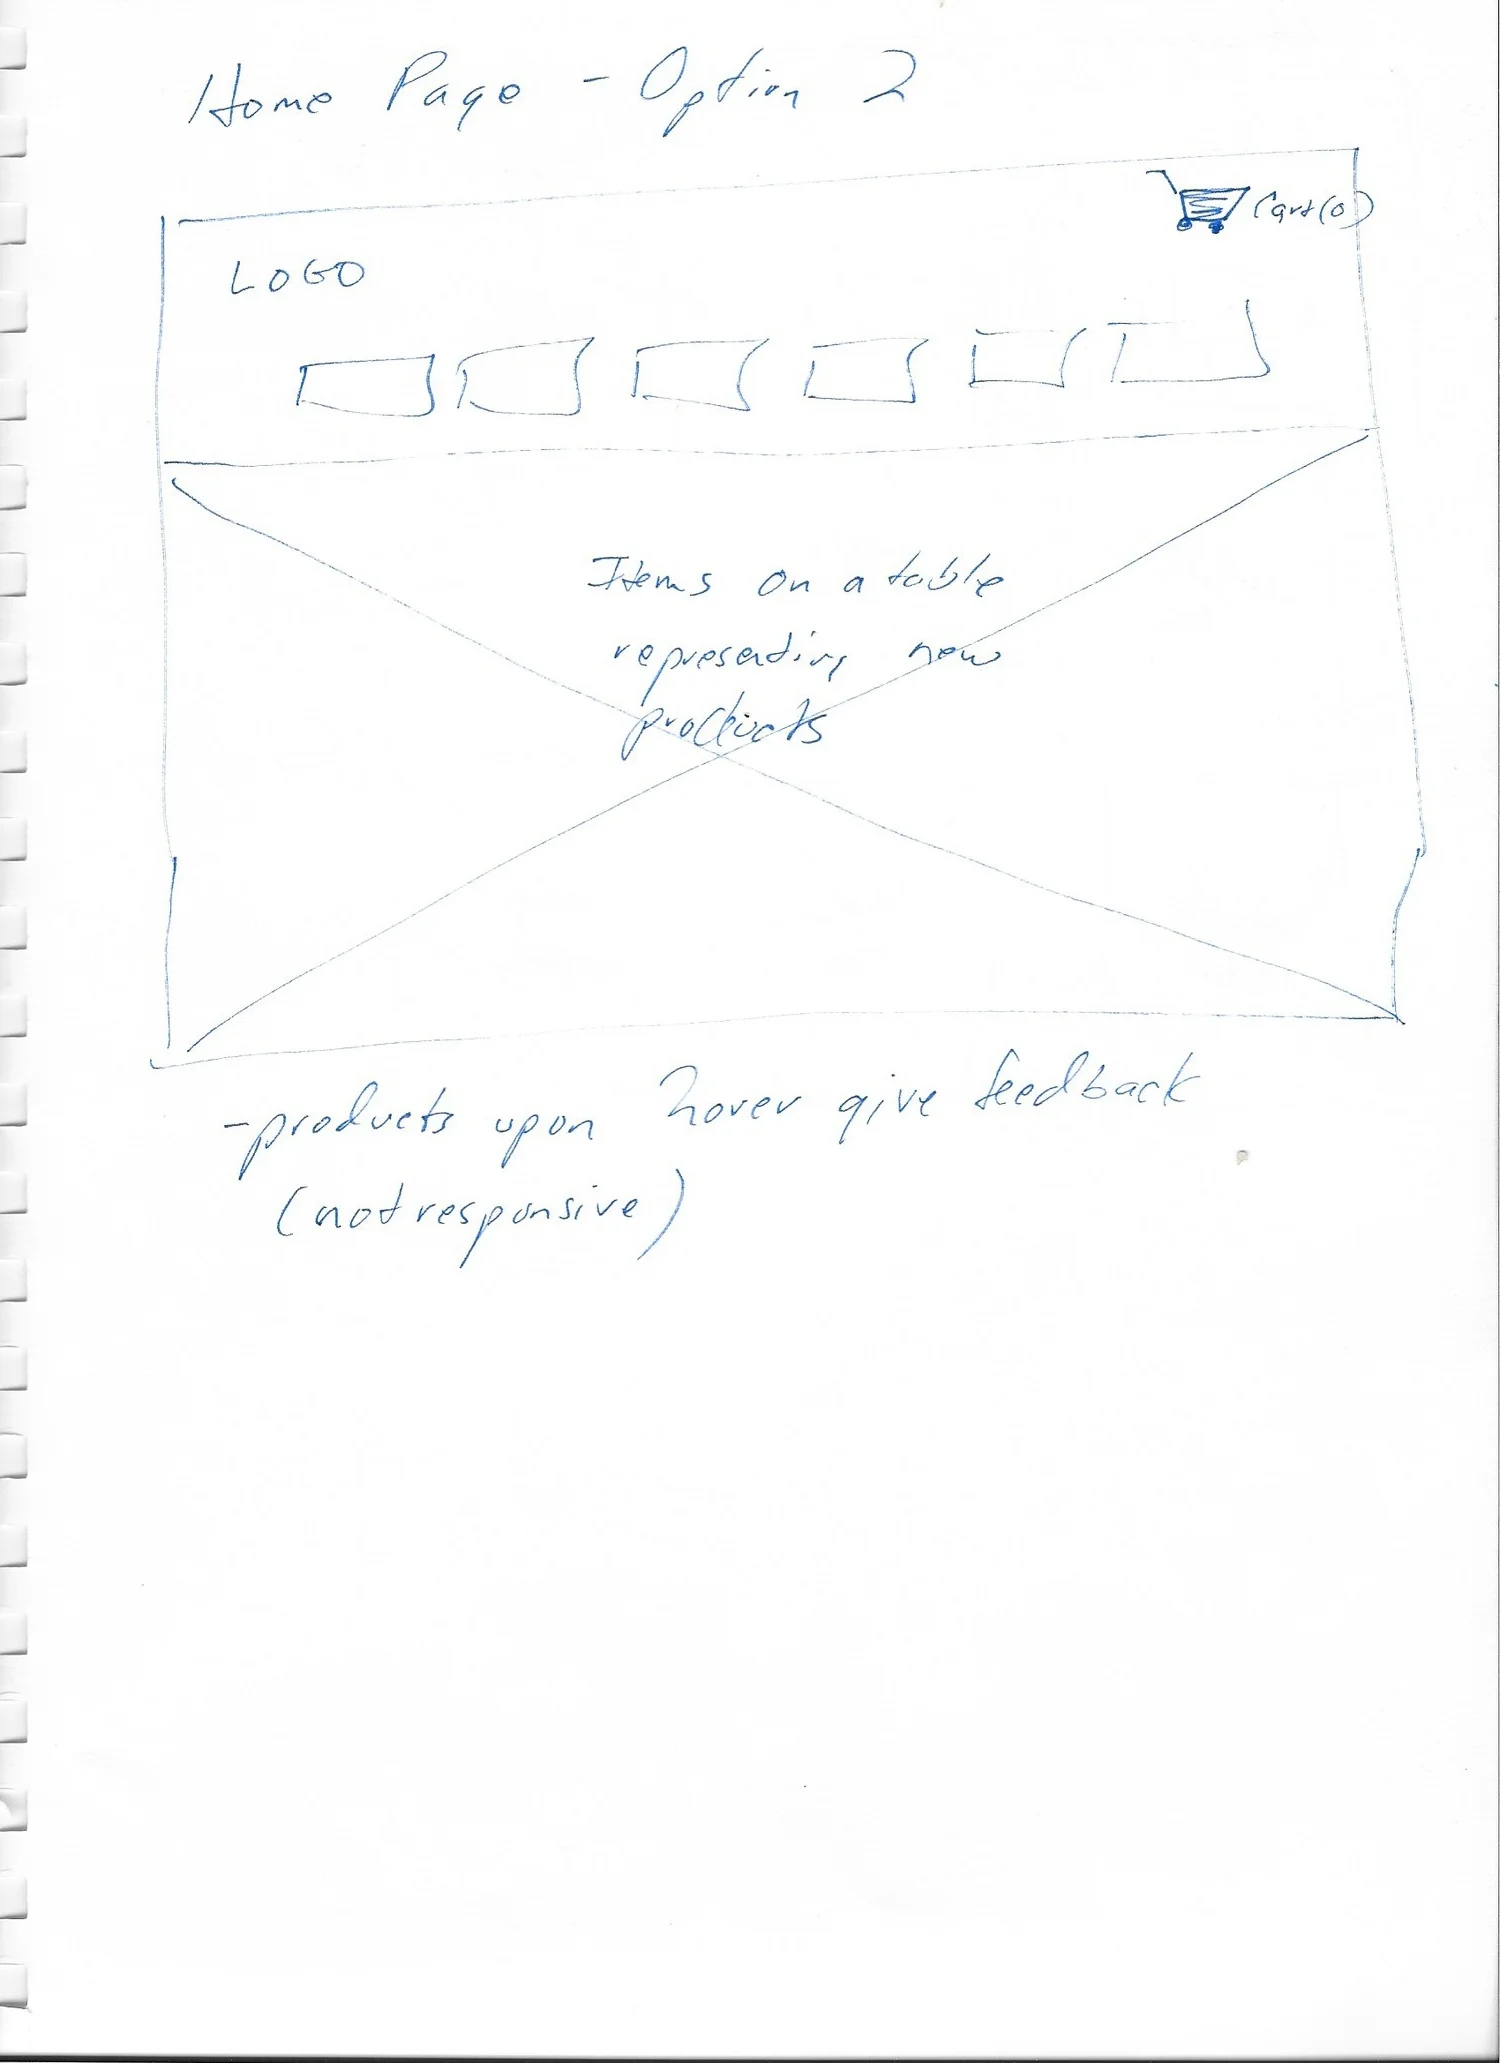 Home Page - Option 2
Cart(0)
LOGO
Items on a table
representing new
products
-products upon hover give feedback
(not responsive)